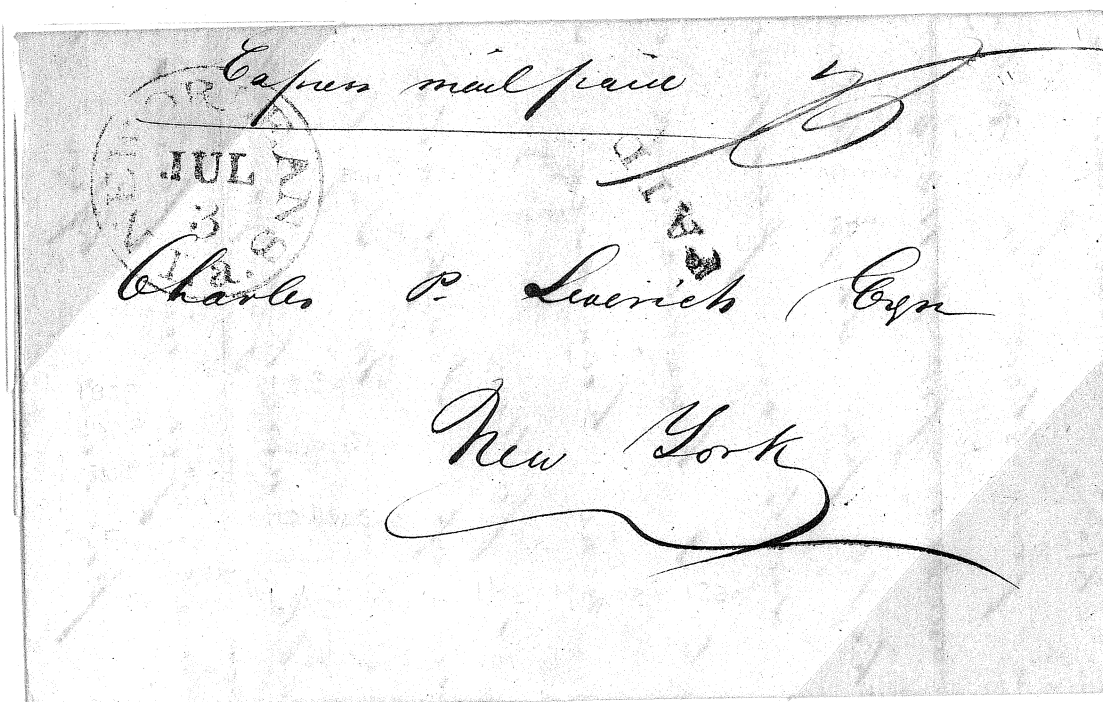 Express mail paid
NEW ORLEANS La.
JUL
3
PAID
Charles P. Leverich Esqr
New York